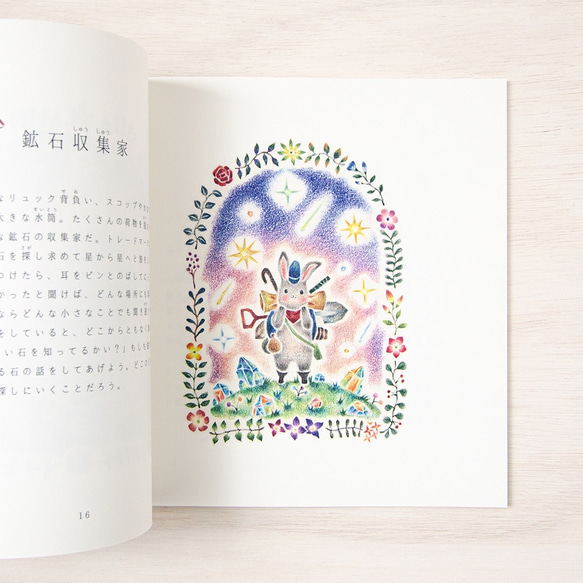 鉱石収集家
しゅうしゅう
なリュック背負い、スコップや
大きな水筒。たくさんの荷物を
な鉱石の収集家だ。トレードマー
石を探し求めて星から星へと
つけたら、耳をピンとのばして
かったと聞けば、どんな場所にも
ならどんな小さなことでも聞き
をしていると、どこからともなく
い石を知ってるかい？」もし
る石の話をしてあげよう。どこ
探しにいくことだろう。
16